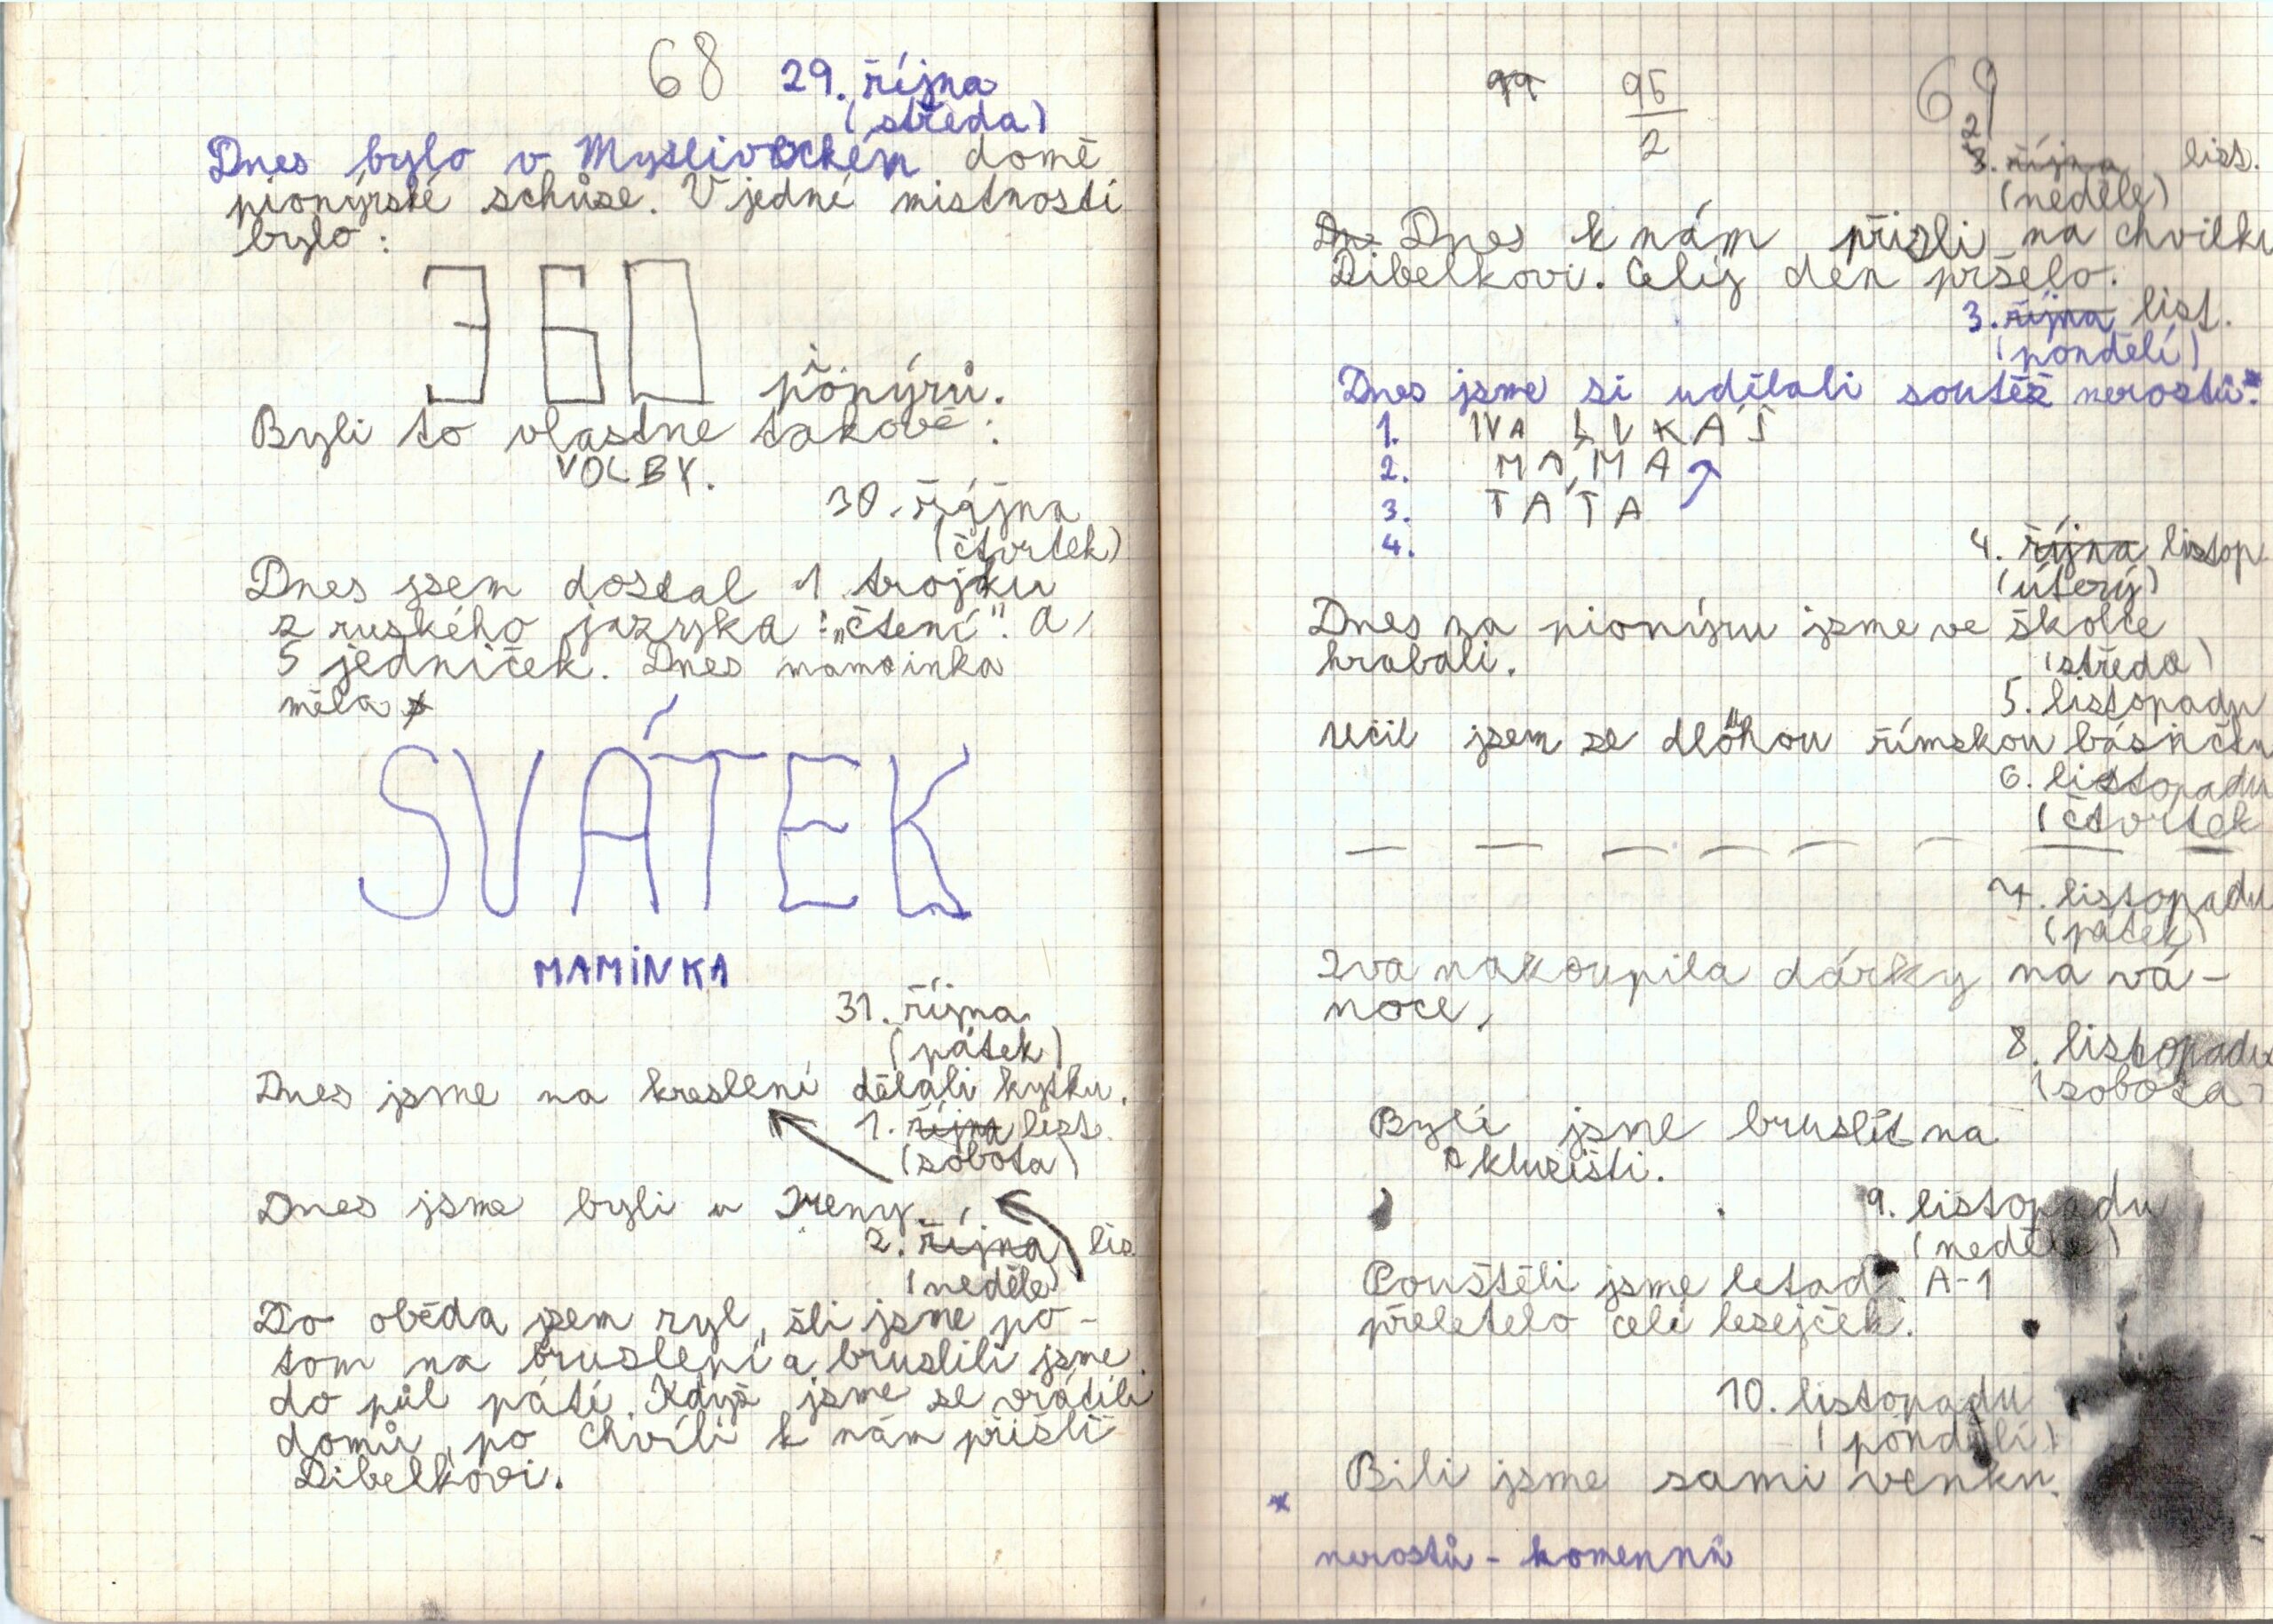 68
29. října
(středa)
Dnes bylo v Mysliveckém domě
pionýrské schůse. V jedné mistnosti
bylo:
360
pionýrů.
Byli to vlastne takové:
VOLBY.
30. října
(čtvrtek)
Dnes jsem dostal 1 trojku
z ruského jazyka: "čtení". a
5 jedniček. Dnes mamainka
měla
SVÁTEK
MAMINKA
31. října
(pátek)
Dnes jsme na kreslení dělali kytku.
1. října list.
(sobota)
Dnes jsme byli u Ireny.
2. října lis
(neděle)
Do oběda jsem ryl, šli jsme po-
tom na bruslení a bruslili jsme
do půl páté. Když jsme se vrátili
domů, po chvíli k nám přišli
Dibelkovi.
99 95/2 69
2
3. října list.
(neděle)
Dne Dnes k nám přišli na chvilku
Dibelkovi. Celiý den pršelo.
3. října list.
(pondělí)
Dnes jsme si udělali soutěž nerostů*.
1. IVA LUKÁŠ
2. MÁMA
3. TÁTA
4.
4. října listop
(úterý)
Dnes na pionýru jsme ve školce
hrabali.
(středa)
5. listopadu
Učil jsem se dlouhou římskou básničku
6. listopadu
(čtvrtek
— — — — — — — —
7. listopadu
(pátek)
Iva nakoupila dárky na vá-
noce,
8. listopadu
(sobota)
Byli jsme bruslit na
kluzišti.
9. listopadu
(neděle)
Pouštěli jsme letad. A-1
přeletelo celí lesejček.
10. listopadu
(pondělí)
Bili jsme sami venku.
*
nerostů - komennů